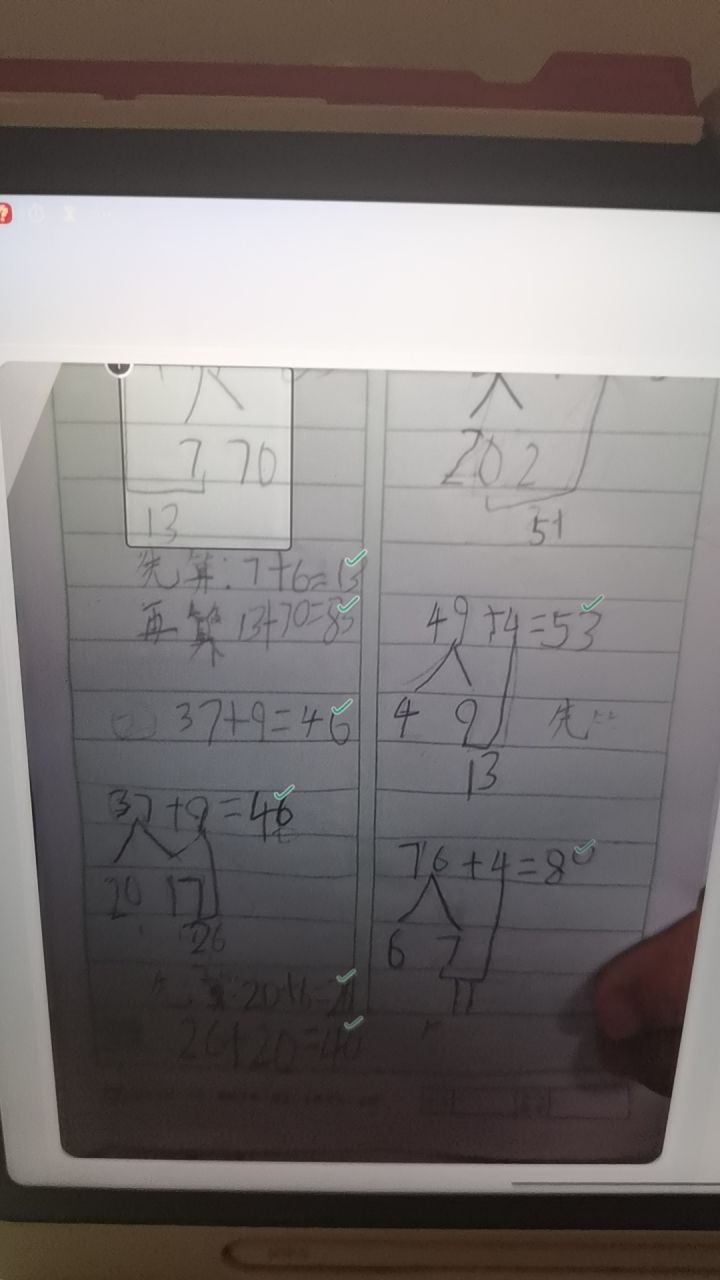 7 70
13
先算:7+6=13
再算 13+70=83
(2) 37+9=46
37+9=46
20 17
26
26+20=46
20 2
51
49+4=53
4 9 先
13
76+4=80
6 7
11